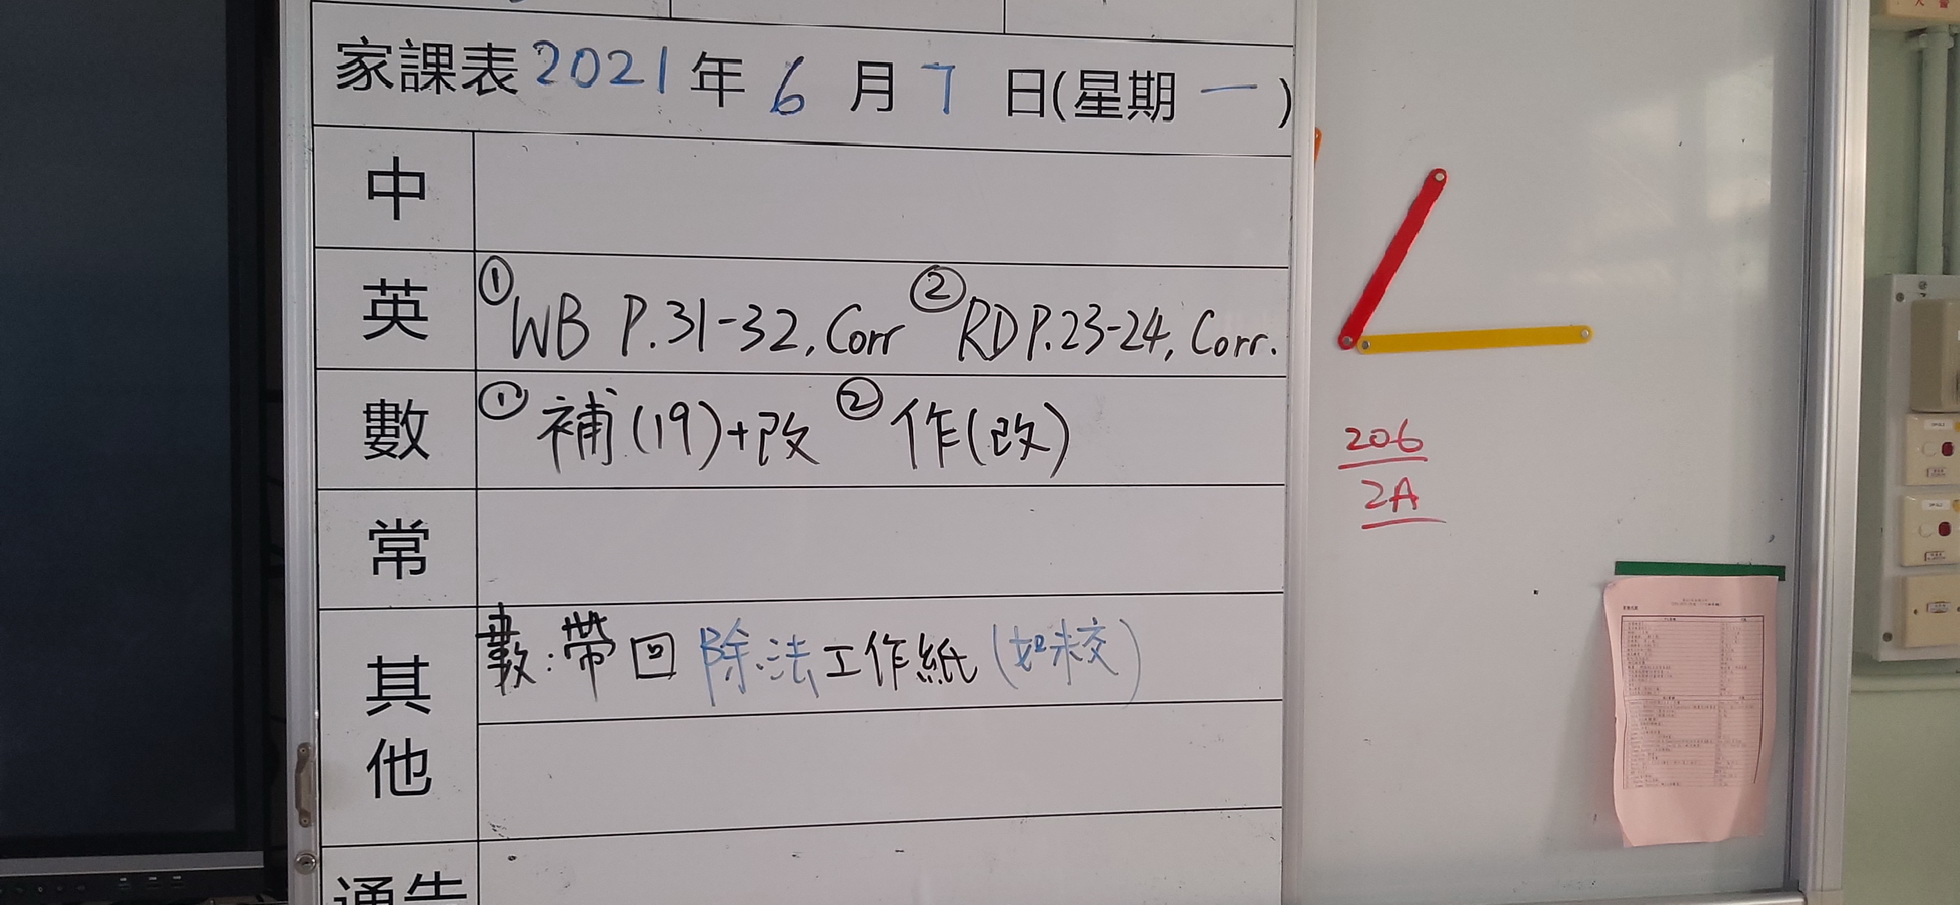 家課表2021年6月7日(星期一)
中
英 ①WB P.31-32, Corr ②RD P.23-24, Corr.
數 ①補(19)+改 ②作(改)
常
其他 數:帶回除法工作紙(如未交)
通告
206
2A